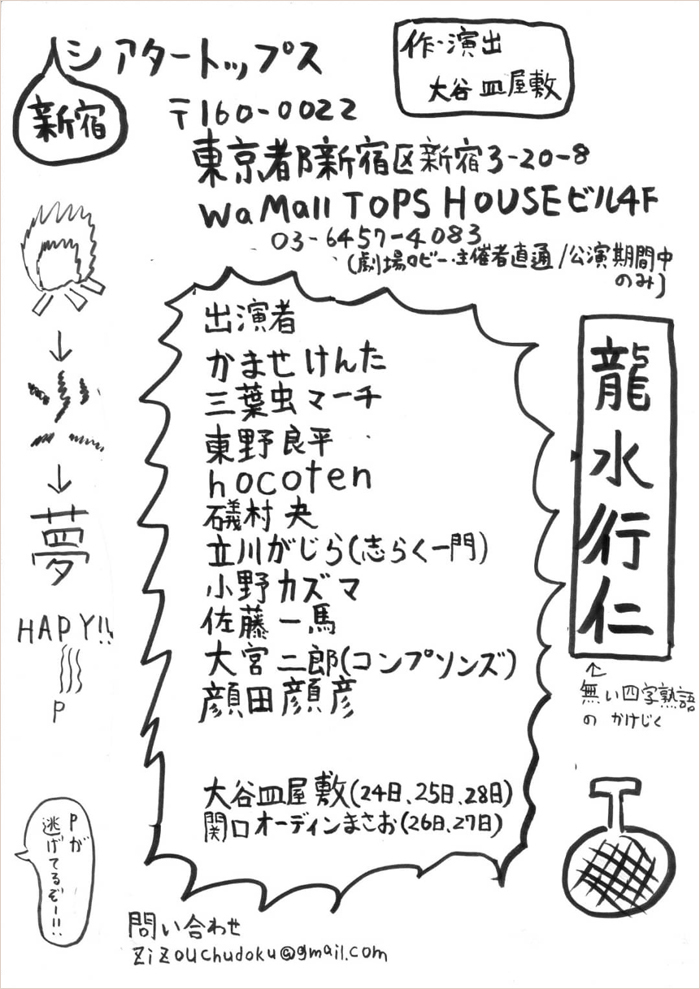 新宿
シアタートップス
作・演出
大谷皿屋敷
〒160-0022
東京都新宿区新宿3-20-8
WaMall TOPS HOUSEビル4F
03-6457-4083
(劇場ロビー・主催者直通/公演期間中
のみ)
出演者
かませけんた
三葉虫マーチ
東野良平
hocoten
磯村央
立川がじら(志らく一門)
小野カズマ
佐藤一馬
大宮二郎(コンプソンズ)
顔田顔彦
大谷皿屋敷(24日、25日、28日)
関口オーディンまさお(26日、27日)
↓
↓
夢
HAPY!!
P
Pが
逃げてるぞー!!
龍水行仁
↑
無い四字熟語
の かけじく
問い合わせ
zizouchudoku@gmail.com